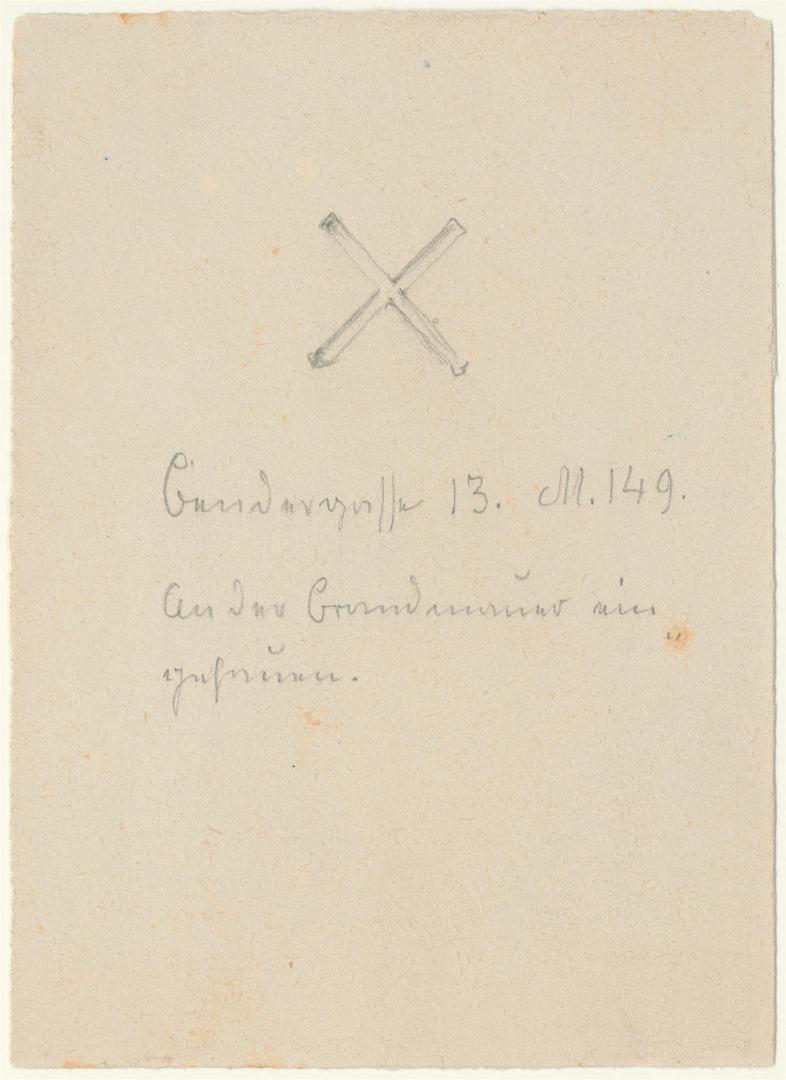 Bendergasse 13. M. 149.
An der Brandmauer ein„
gehauen.